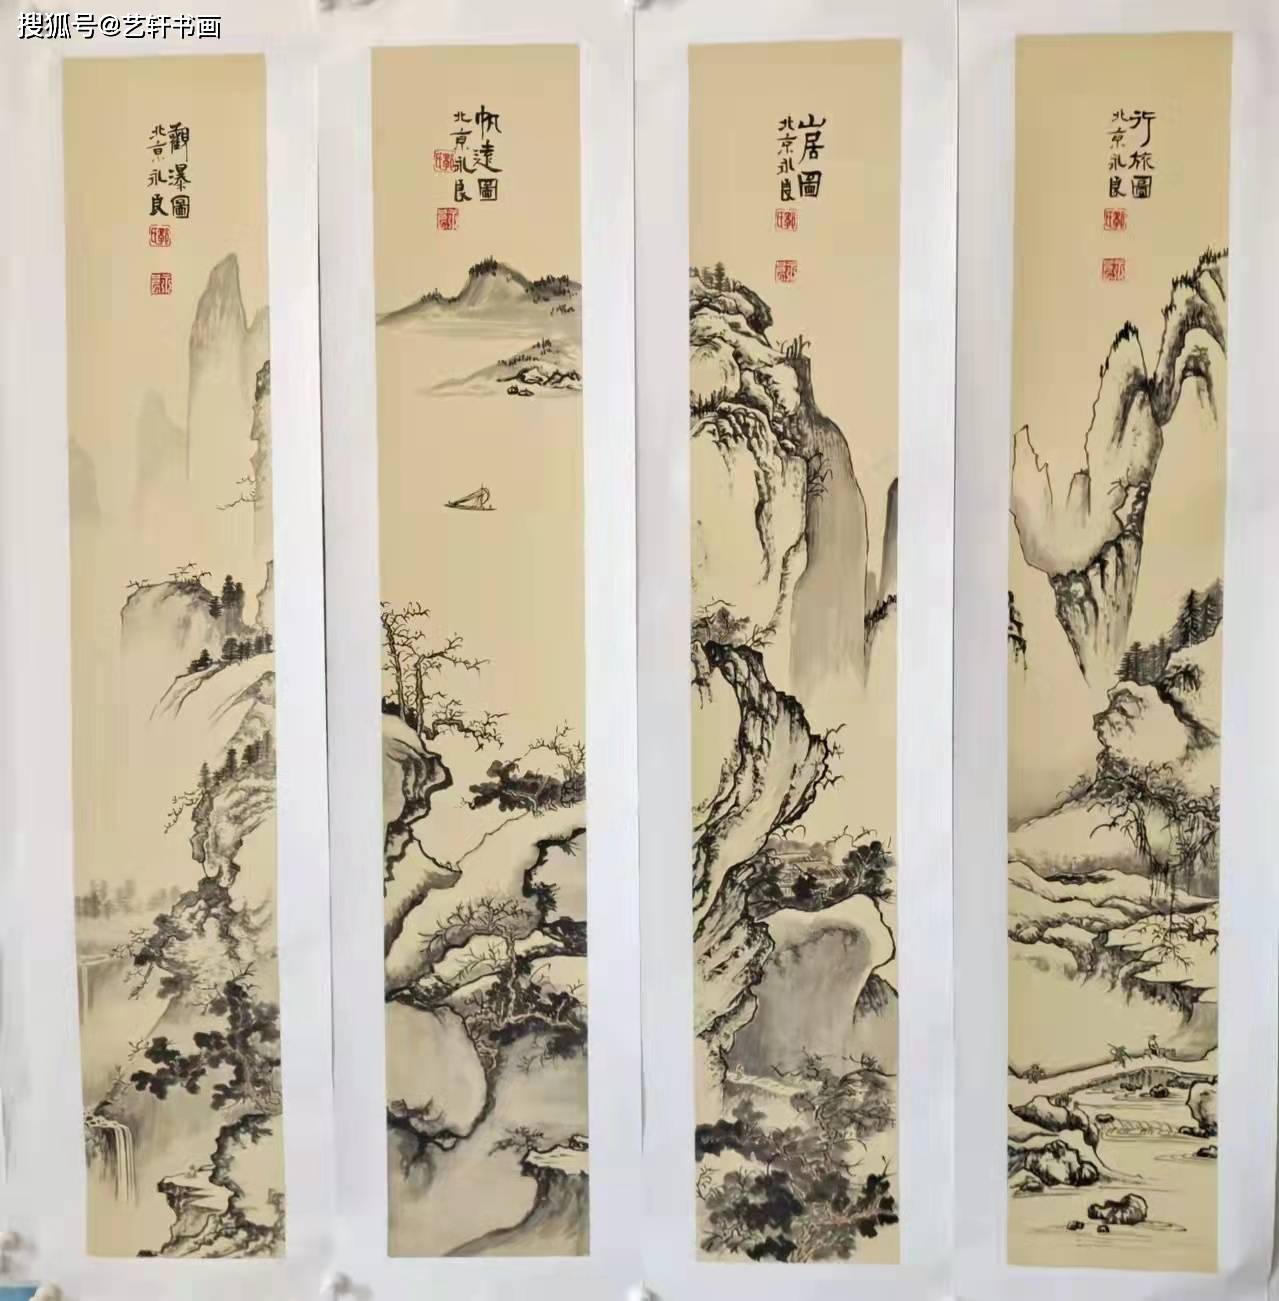 搜狐号@艺轩书画
觀瀑圖
北京永良
帆遠圖
北京永良
山居圖
北京永良
行旅圖
北京永良